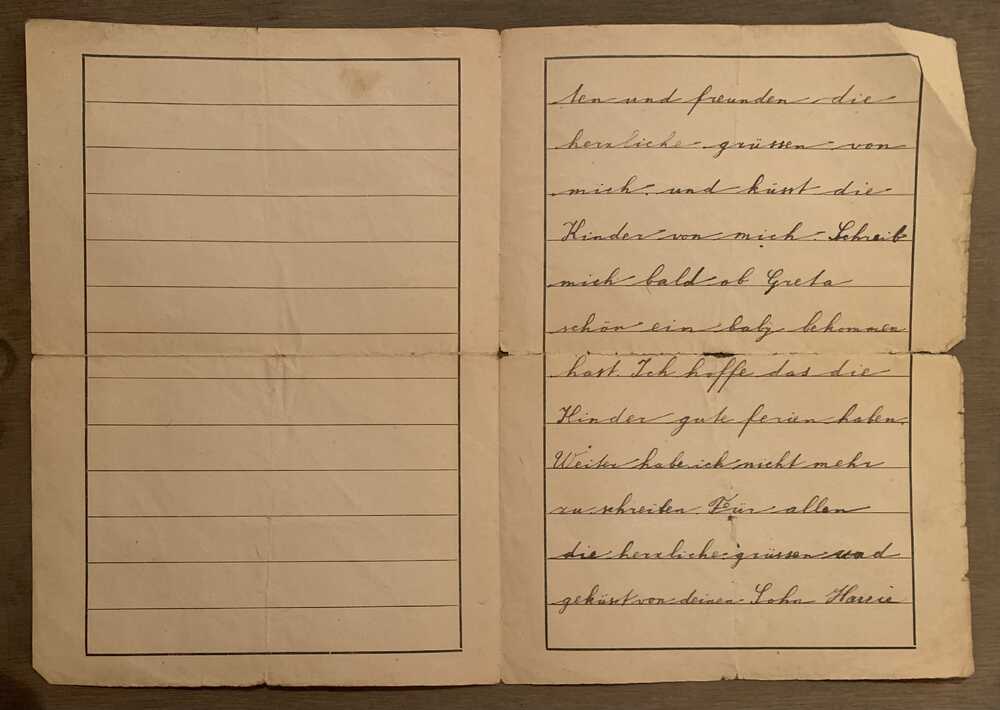 ten und freunden die
herzliche grüssen von
mich. und küsst die
Kinder von mich. Schreib
mich bald ob Greta
schön ein baby bekommen
hast. Ich hoffe das die
Kinder gute ferien haben.
Weiter habe ich nicht mehr
zu schreiben. Für allen
die herzliche grüssen und
geküsst von deinen Sohn Harrie